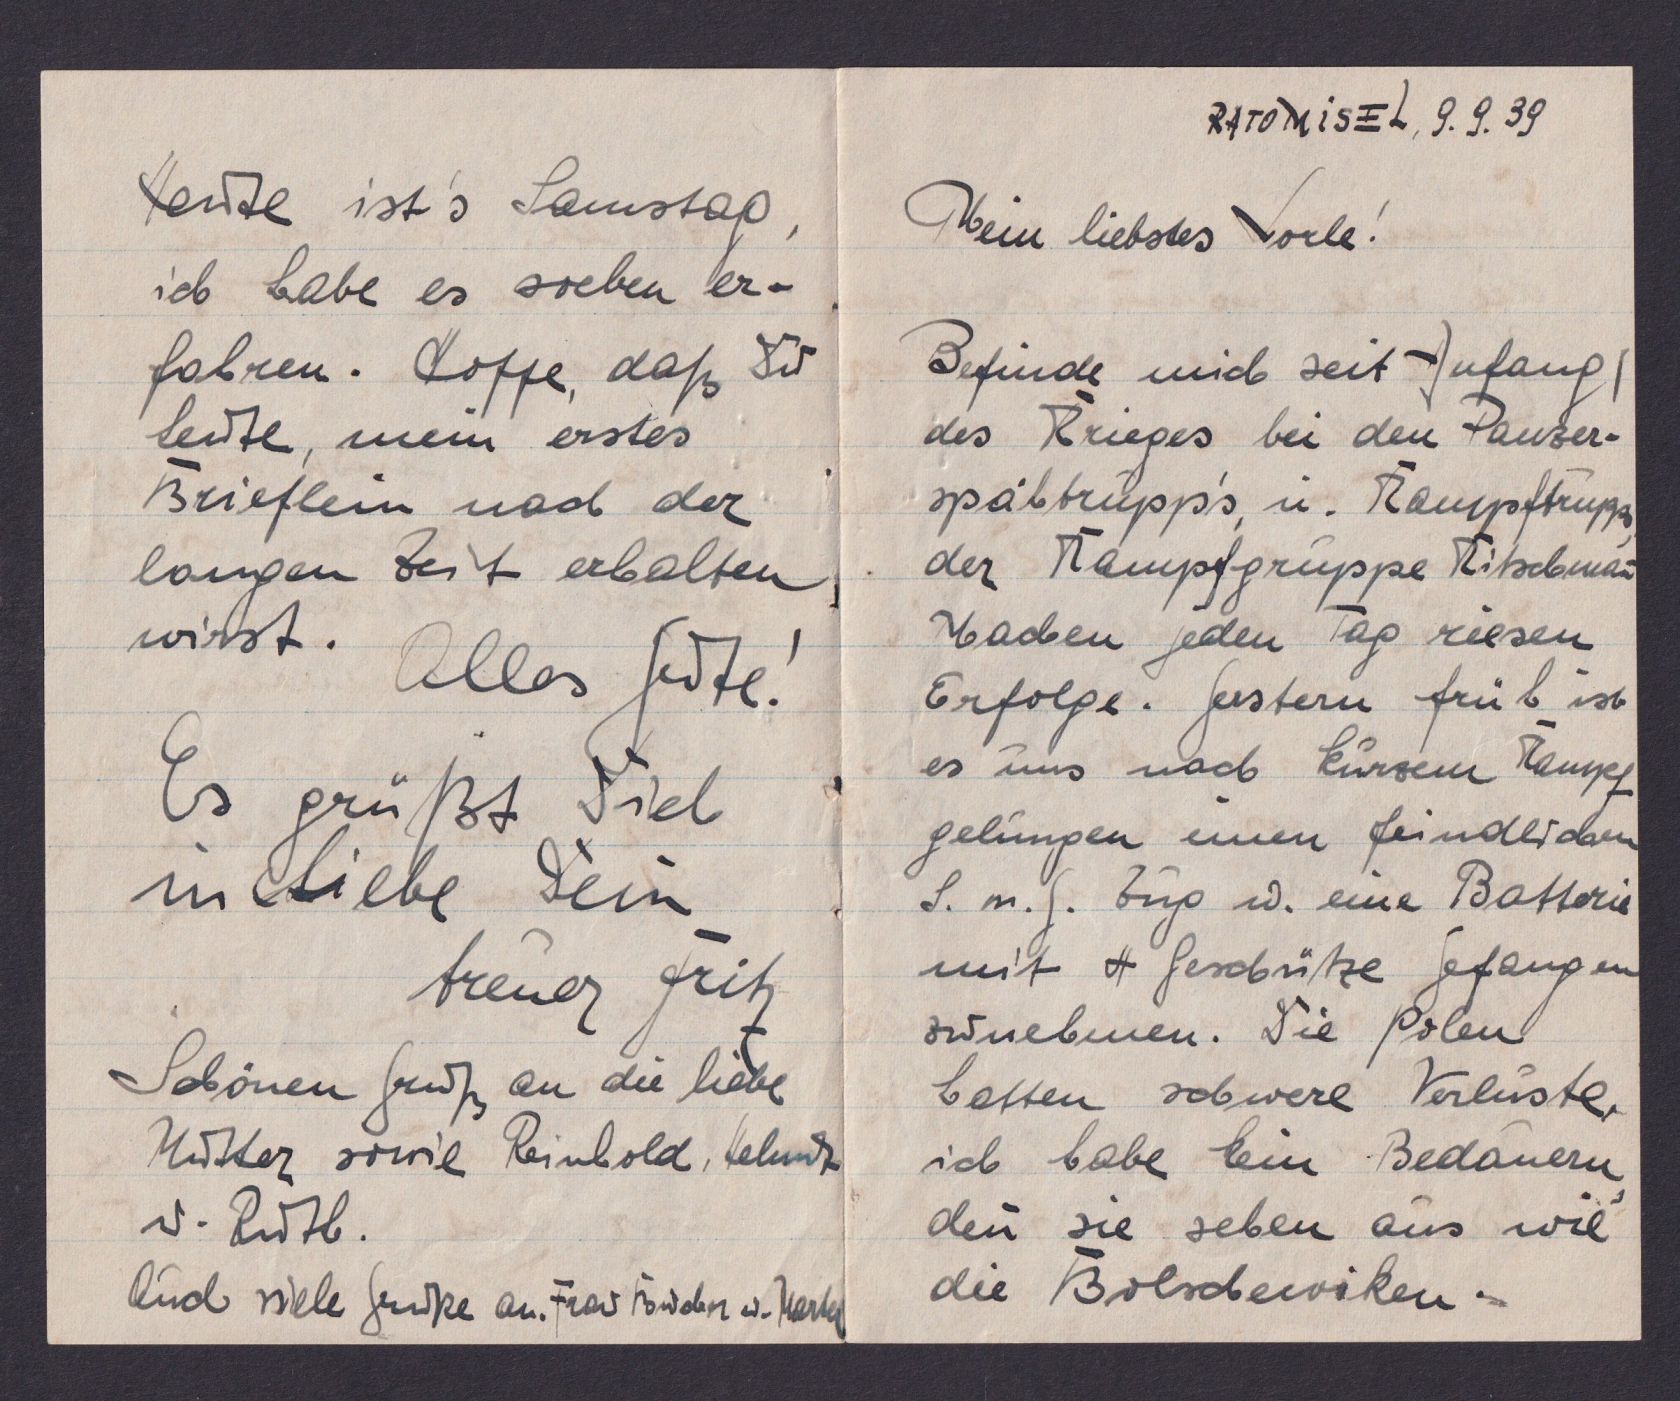 RATOMISEL, 9.9.39
Mein liebstes Lorle!
Befinde mich seit Anfang
des Krieges bei den Panzer-
spähtrupp's, u. Kampftrupps
der Kampfgruppe Kitschman̄
Machen jeden Tag riesen
Erfolge. Gestern früh ist
es uns nach kurzem Kampf
gelungen einen feindlichen
S. m. G. Zug u. eine Batterie
mit 4 Geschütze gefangen
zunehmen. Die Polen
hatten schwere Verluste,
ich habe kein Bedauern,
den̄ sie sehen aus wie
die Bolschewiken.-
Heute ist's Samstag,
ich habe es soeben er-
fahren. Hoffe, daß Du
heute, mein erstes
Brieflein nach der
langen Zeit erhalten
wirst.
Alles Gute!
Es grüßt Dich
in Liebe Dein
treuer Fritz
Schönen Gruß an die liebe
Mutter sowie Reinhold, Helmut
u. Ruth.
Auch viele Grüße an Frau u.